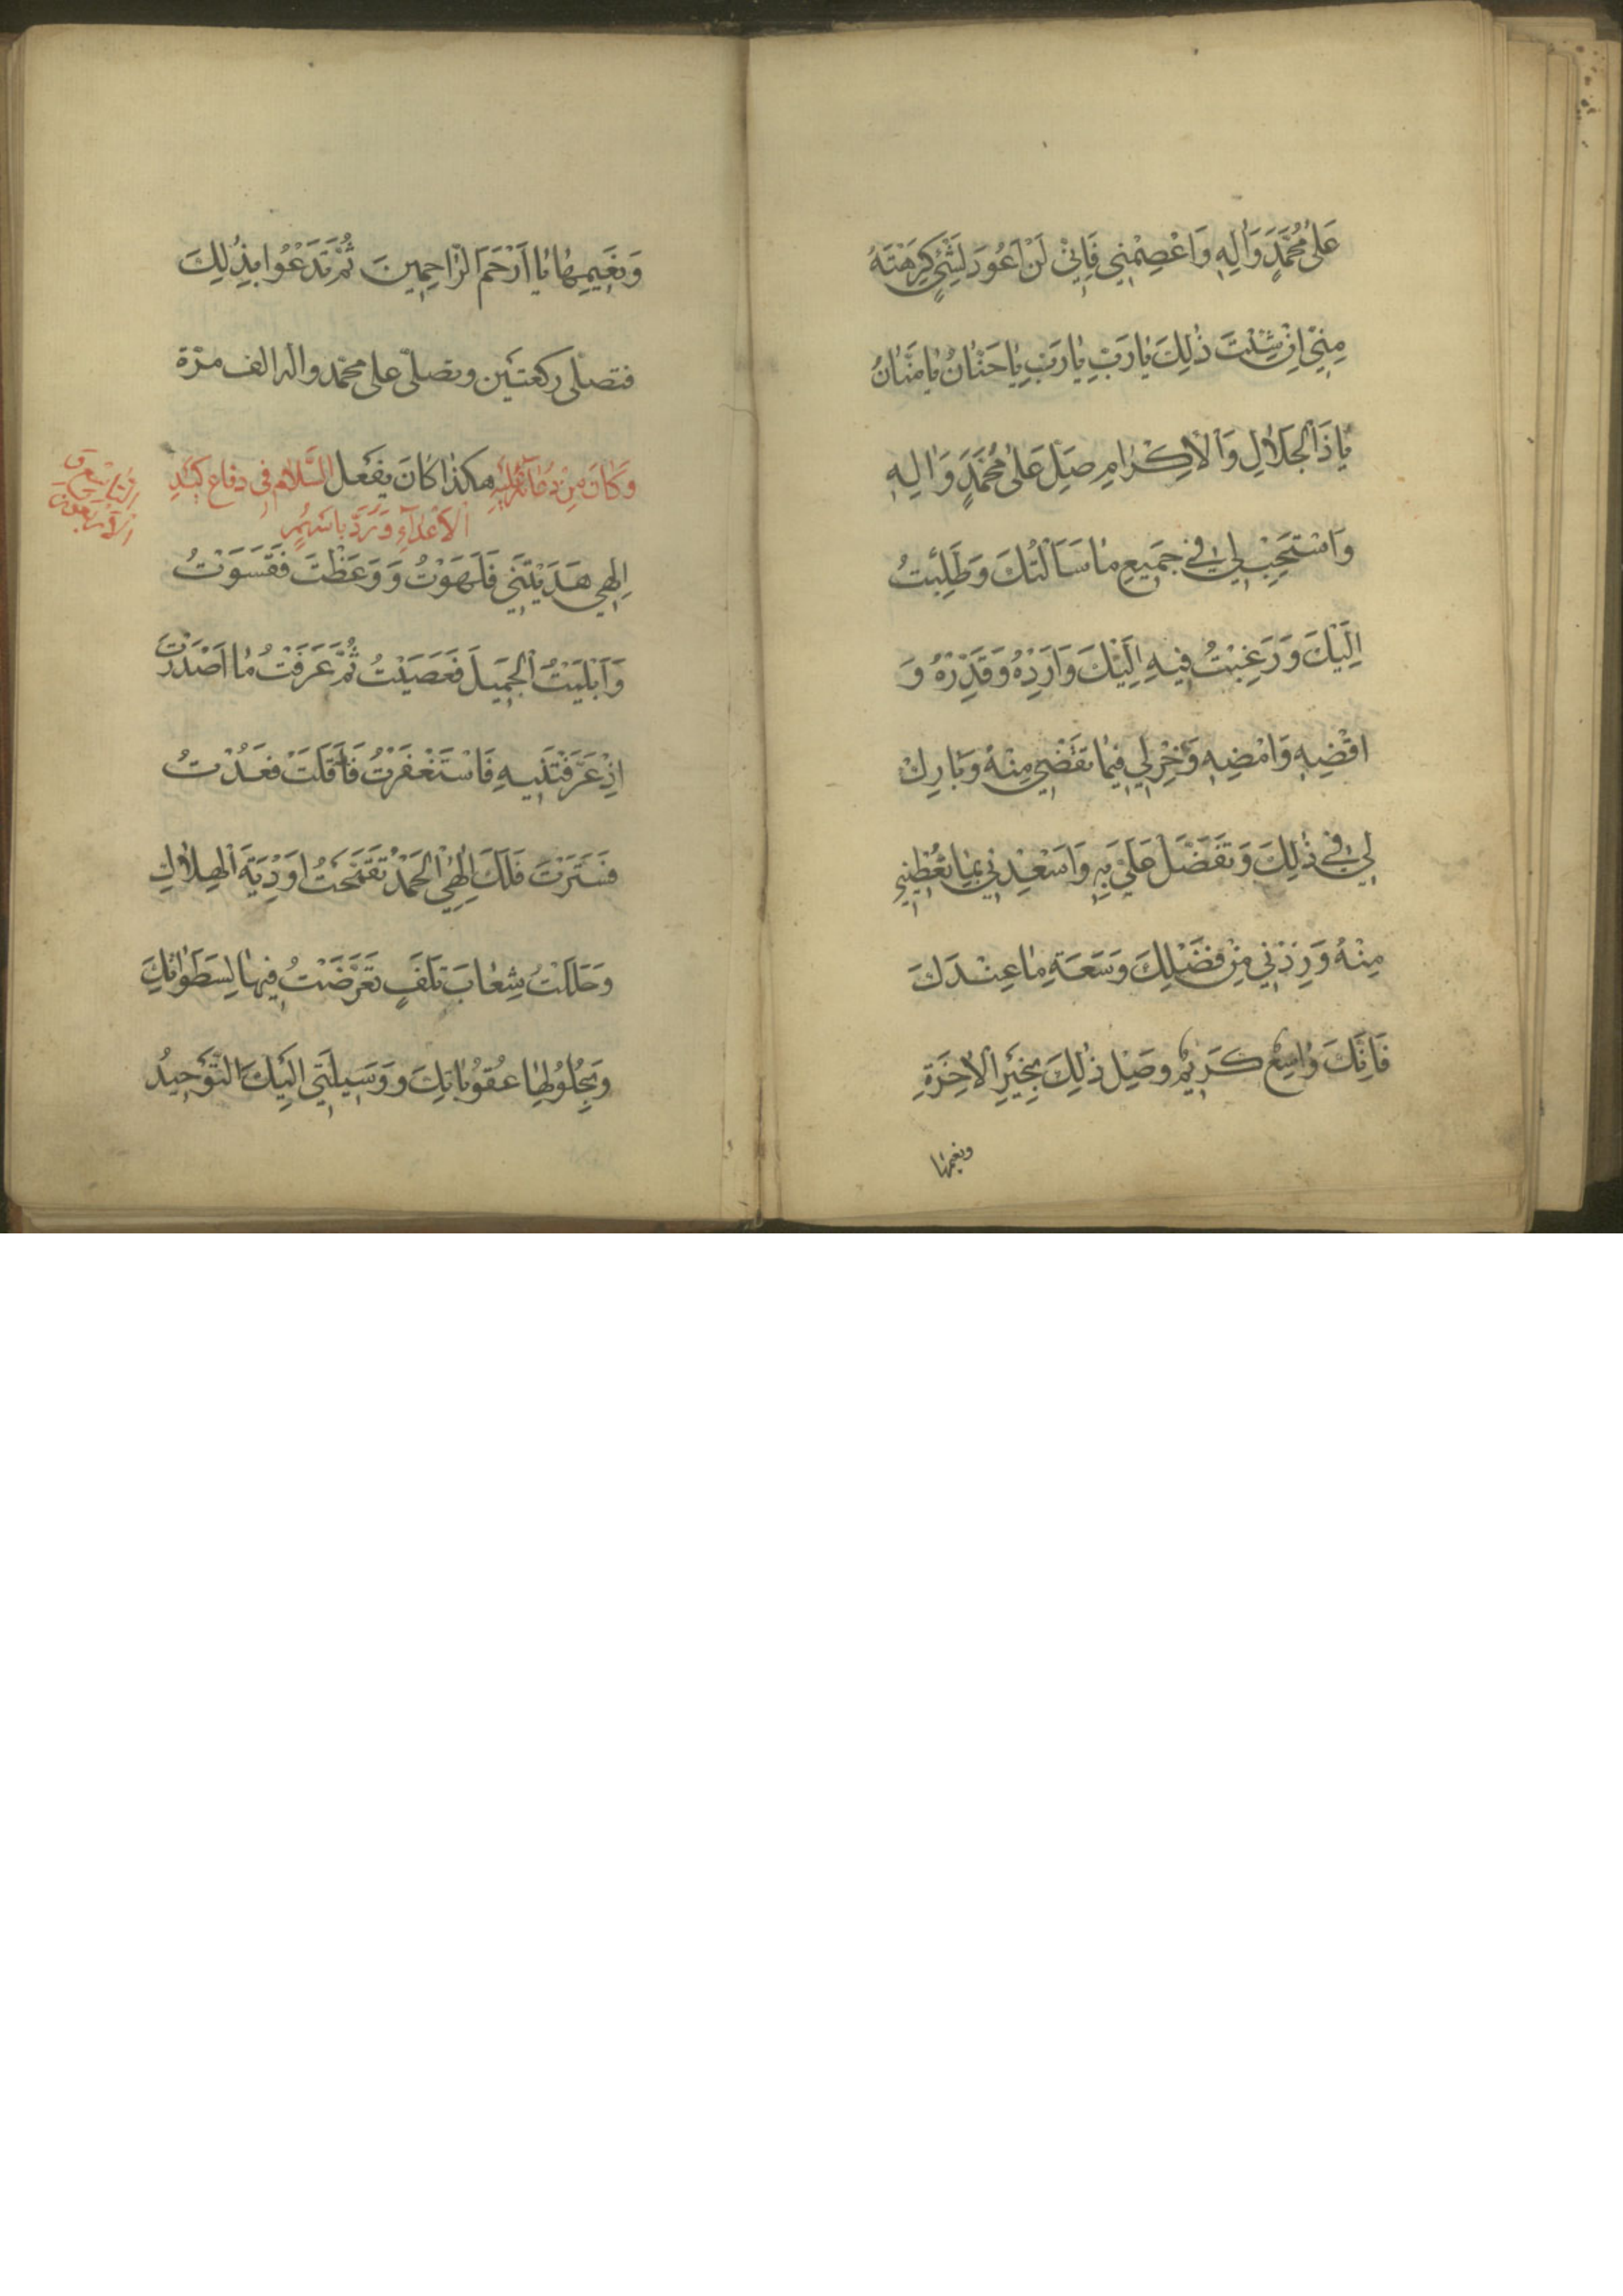 عَلىٰ مُحَمَّدٍ وَاٰلِهِ وَاعْصِمْنِي فَاِنّي لَنْ اَعُودَ لِشَيْءٍ كَرِهْتَهُ
مِنّي اِنْ شِئْتَ ذٰلِكَ يٰا رَبِّ يٰا رَبِّ يٰا حَنّٰانُ يٰا مَنّٰانُ
يٰا ذَا الْجَلٰالِ وَالْاِكْرٰامِ صَلِّ عَلىٰ مُحَمَّدٍ وَاٰلِهِ
وَاسْتَجِبْ لِي في جَمِيعِ مٰا سَاَلْتُكَ وَطَلَبْتُ
اِلَيْكَ وَرَغِبْتُ فِيهِ اِلَيْكَ وَاَرِدْهُ وَقَدِّرْهُ وَ
اقْضِهِ وَامْضِهِ وَخِرْ لِي فِيمٰا تَقْضِي مِنْهُ وَبٰارِكْ
لِي في ذٰلِكَ وَتَفَضَّلْ عَلَيَّ بِهِ وَاَسْعِدْنِي بِمٰا تُعْطِينِي
مِنْهُ وَزِدْنِي مِنْ فَضْلِكَ وَسَعَةِ مٰا عِنْدَكَ
فَاِنَّكَ وٰاسِعٌ كَرِيمٌ وَصِلْ ذٰلِكَ بِخَيْرِ الْاٰخِرَةِ
ونعيمها
وَنَعِيمِهٰا يٰا اَرْحَمَ الرّٰاحِمِينَ ثُمَّ تَدْعُوا بِذٰلِكَ
فتصلّى ركعتين وتصلّى على محمّد واله الف مرّة
هكذا كٰانَ يفعل
وَكٰانَ مِنْ دُعٰائِهِ عَلَيْهِ السَّلام في دفاع كَيْدِ
الْاَعْدٰاءِ وَرَدِّ بأسهم
التاسع و
الأربعون
اِلٰهِي هَدَيْتَنِي فَلَهَوْتُ وَوَعَظْتَ فَقَسَوْتُ
وَاَبْلَيْتَ الْجَمِيلَ فَعَصَيْتُ ثُمَّ عَرَفْتُ مٰا اَصْدَرْتَ
اِذْ عَرَّفْتَنِيهِ فَاسْتَغْفَرْتُ فَاَقَلْتَ فَعُدْتُ
فَسَتَرْتَ فَلَكَ اِلٰهِي الْحَمْدُ تَقَحَّمْتُ اَوْدِيَةَ الْهَلٰاكِ
وَحَلَلْتُ شِعٰابَ تَلَفٍ تَعَرَّضْتُ فِيهٰا لِسَطَوٰاتِكَ
وَبِحُلُولِهٰا عُقُوبٰاتِكَ وَوَسِيلَتِي اِلَيْكَ التَّوْحِيدُ